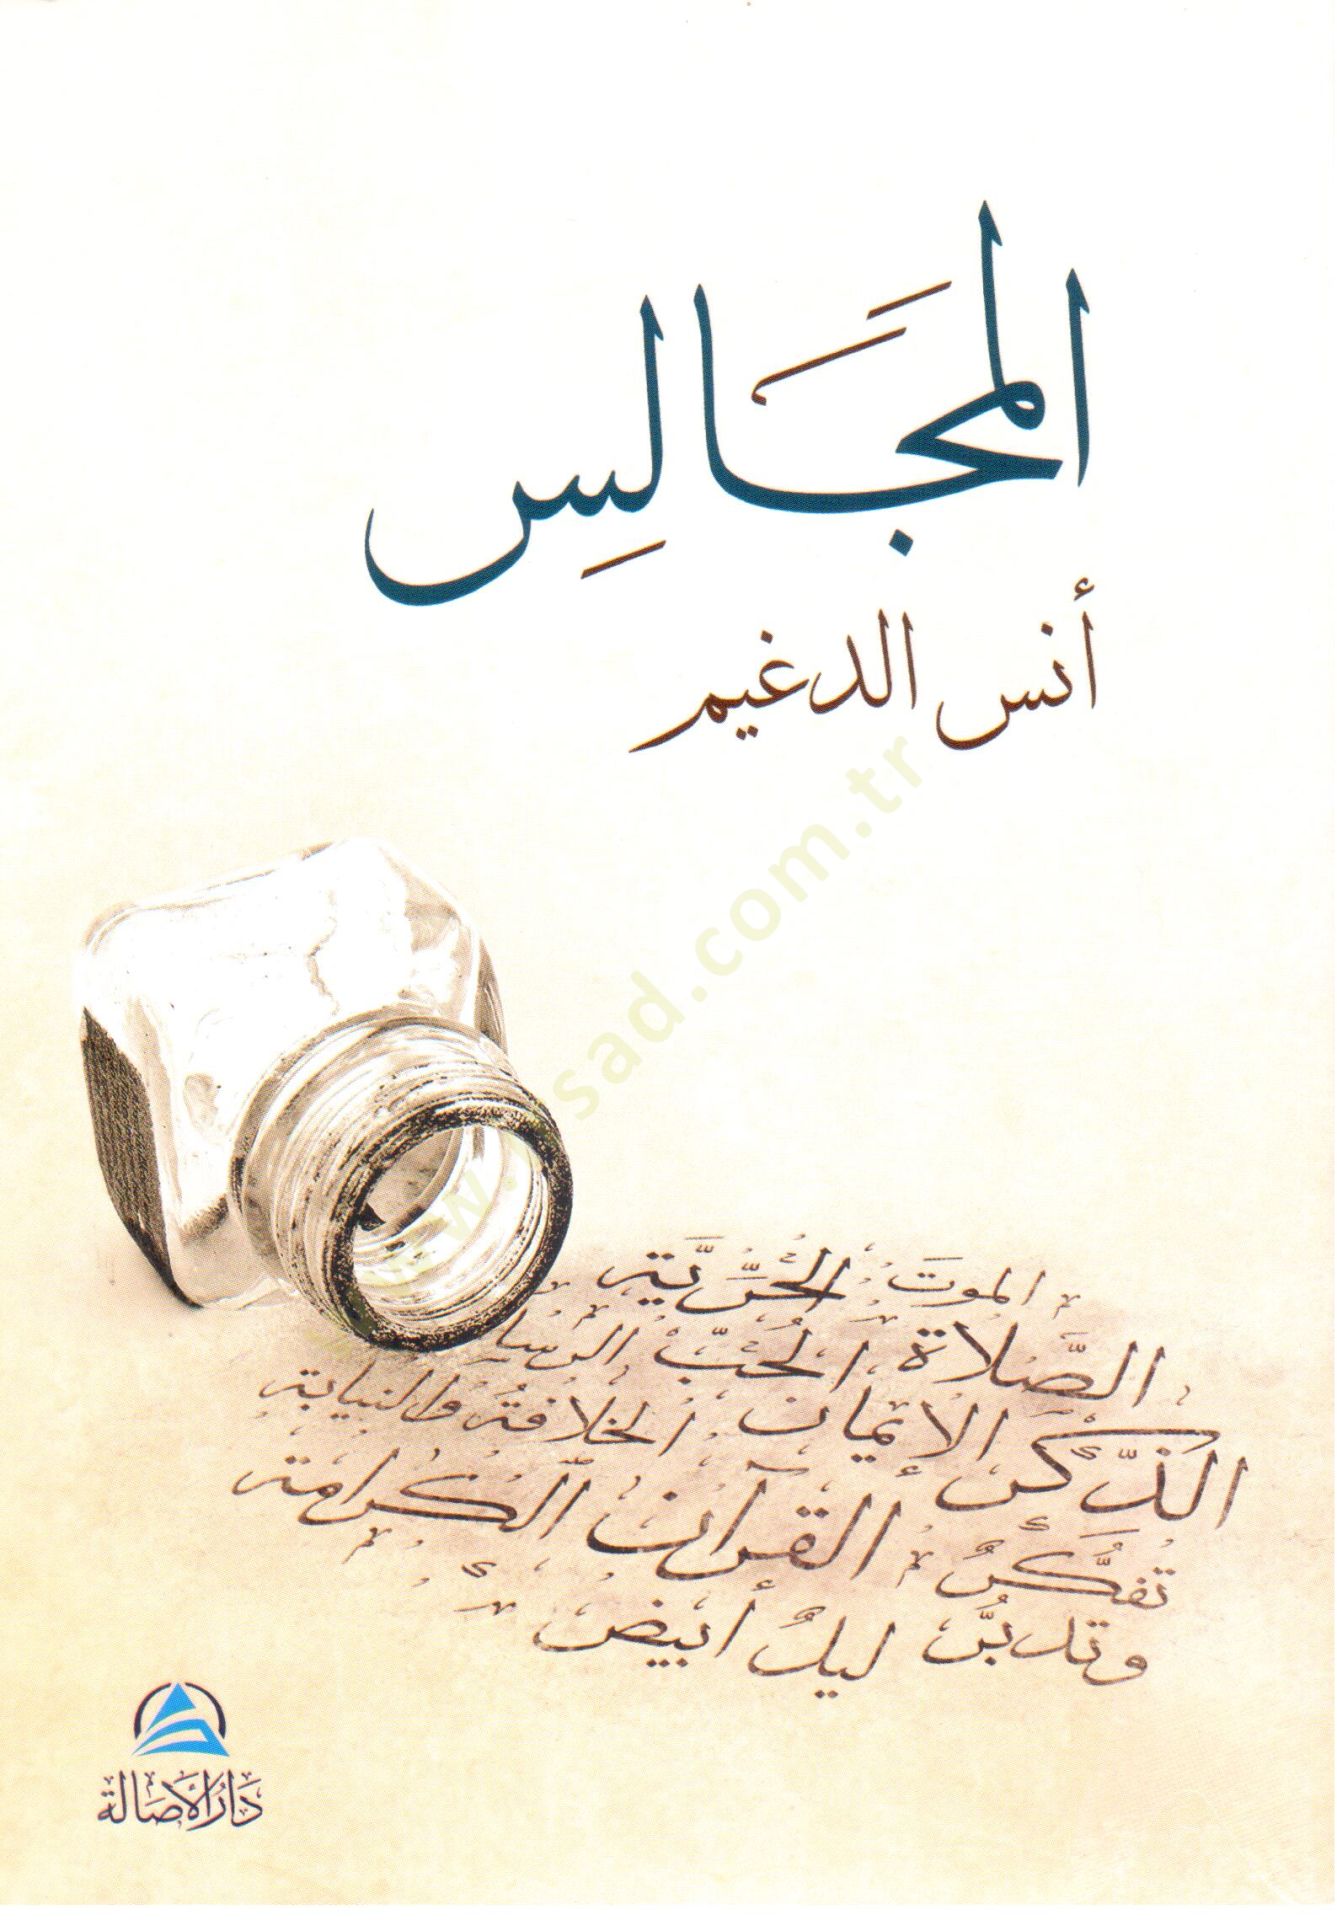 المجَالِس
أنس الدغيم
الموتَ الحُرِّيَّة
الصَّلاة الحُبّ الرسا
الذِّكر الإيمان الخلافة والنيابة
تفكُّر القرآن الكرامة
وتدبُّر ليلٌ أبيض
دَارُ الأَصَالة